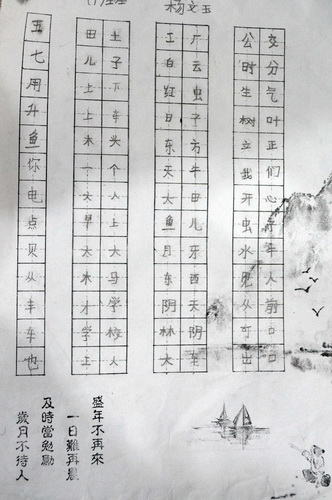 杨文玉
交分气叶正们心年人前口口
公时生树立我开虫水见从可出
厂云虫子方牛田儿牙西天阴车
工白红日东天大鱼月东阴林大
土子下车头个人上大马学校人
田儿土上木大早太木才学上
五七用升鱼你电点贝从丰车也
盛年不再來
一日難再晨
及時當勉勵
歲月不待人